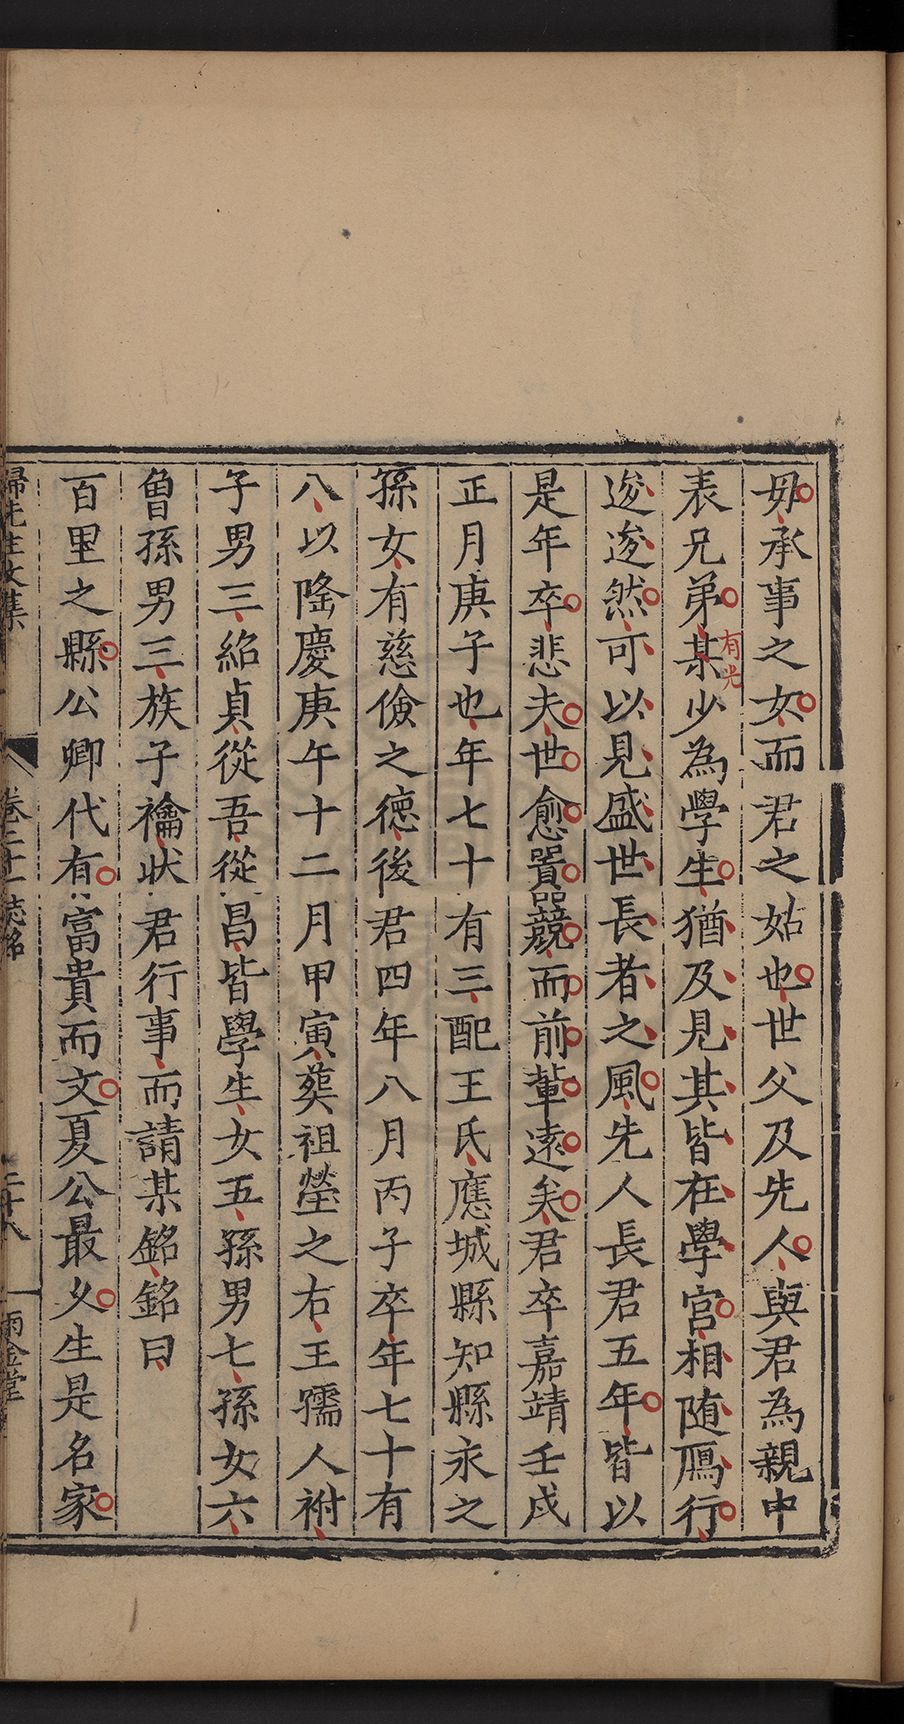 毋承事之女而君之姑也世父及先人與君為親中
表兄弟某少為學生猶及見其皆在學宮相随鴈行
有光
逡逡然可以見盛世長者之風先人長君五年皆以
是年卒悲夫世愈嚚競而前輩遠矣君卒嘉靖壬戌
正月庚子也年七十有三配王氏應城縣知縣永之
孫女有慈儉之德後君四年八月丙子卒年七十有
八以隆慶庚午十二月甲寅葬祖塋之右王孺人祔
子男三紹貞從吾從昌皆學生女五孫男七孫女六
曾孫男三族子禴狀君行事而請某銘銘曰
百里之縣公卿代有富貴而文夏公最乆生是名家
歸先生文集
卷二十 誌銘
二十八
雨金堂